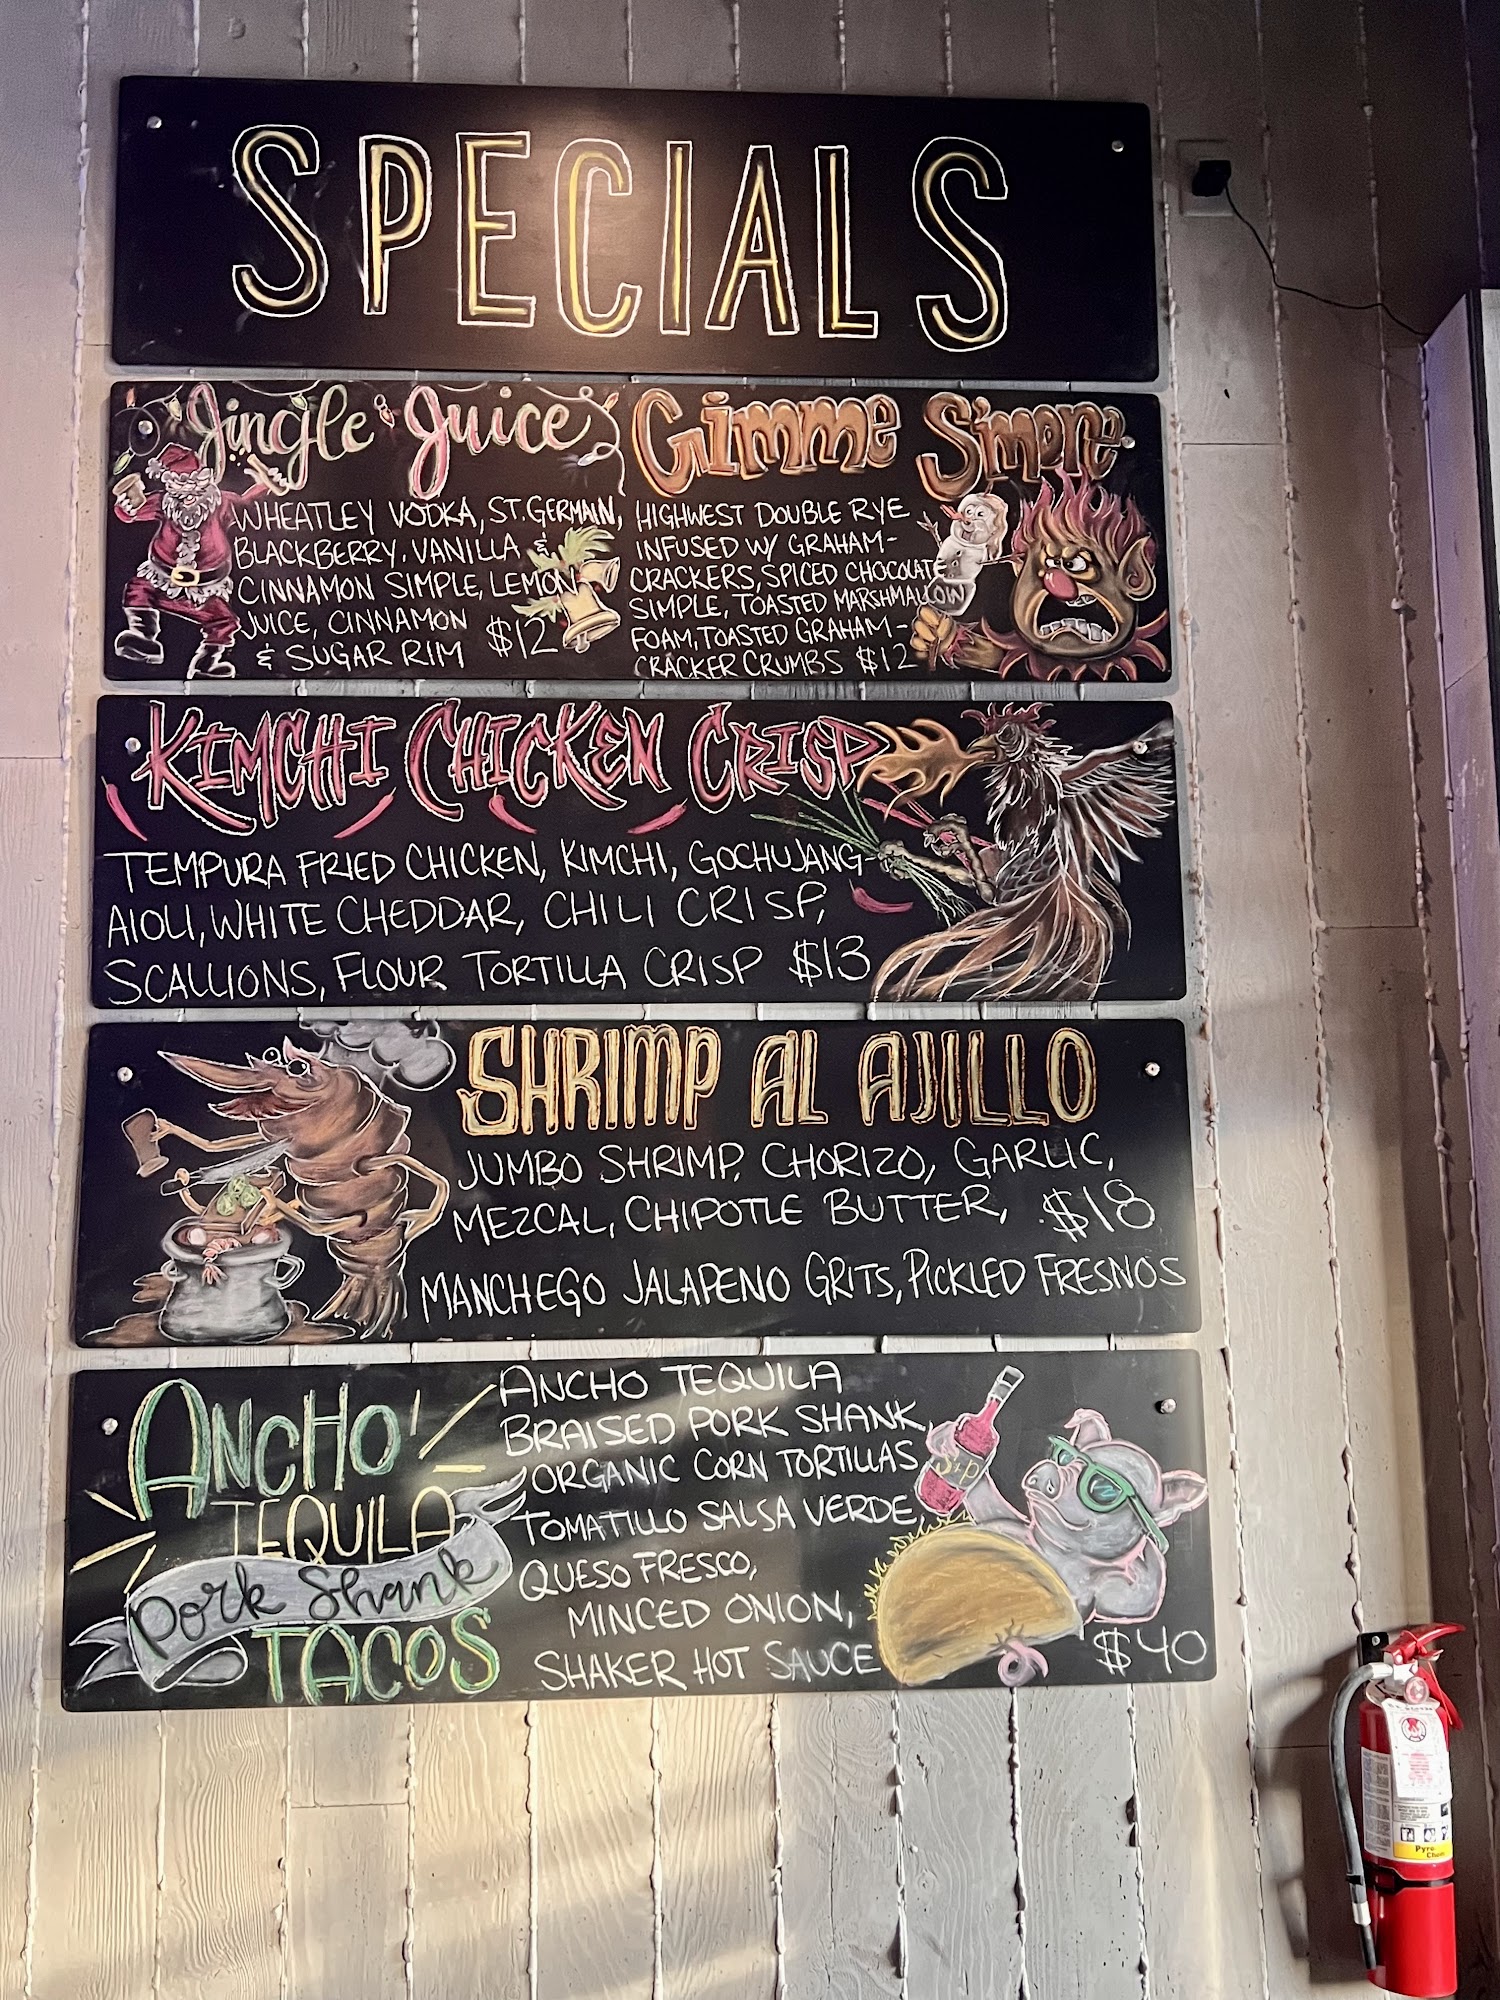 SPECIALS
Jingle Juice
WHEATLEY VODKA, ST. GERMAIN,
BLACKBERRY, VANILLA &
CINNAMON SIMPLE, LEMON
JUICE, CINNAMON
& SUGAR RIM $12
Gimme S'more
HIGHWEST DOUBLE RYE
INFUSED W/ GRAHAM-
CRACKERS, SPICED CHOCOLATE
SIMPLE, TOASTED MARSHMALLOW
FOAM, TOASTED GRAHAM-
CRACKER CRUMBS $12
KIMCHI CHICKEN CRISP
TEMPURA FRIED CHICKEN, KIMCHI, GOCHUJANG-
AIOLI, WHITE CHEDDAR, CHILI CRISP,
SCALLIONS, FLOUR TORTILLA CRISP $13
SHRIMP AL AJILLO
JUMBO SHRIMP, CHORIZO, GARLIC,
MEZCAL, CHIPOTLE BUTTER, $18
MANCHEGO JALAPENO GRITS, PICKLED FRESNOS
ANCHO
TEQUILA
Pork Shank
TACOS
ANCHO TEQUILA
BRAISED PORK SHANK,
ORGANIC CORN TORTILLAS
TOMATILLO SALSA VERDE,
QUESO FRESCO,
MINCED ONION,
SHAKER HOT SAUCE
$40
Pyro
Chem